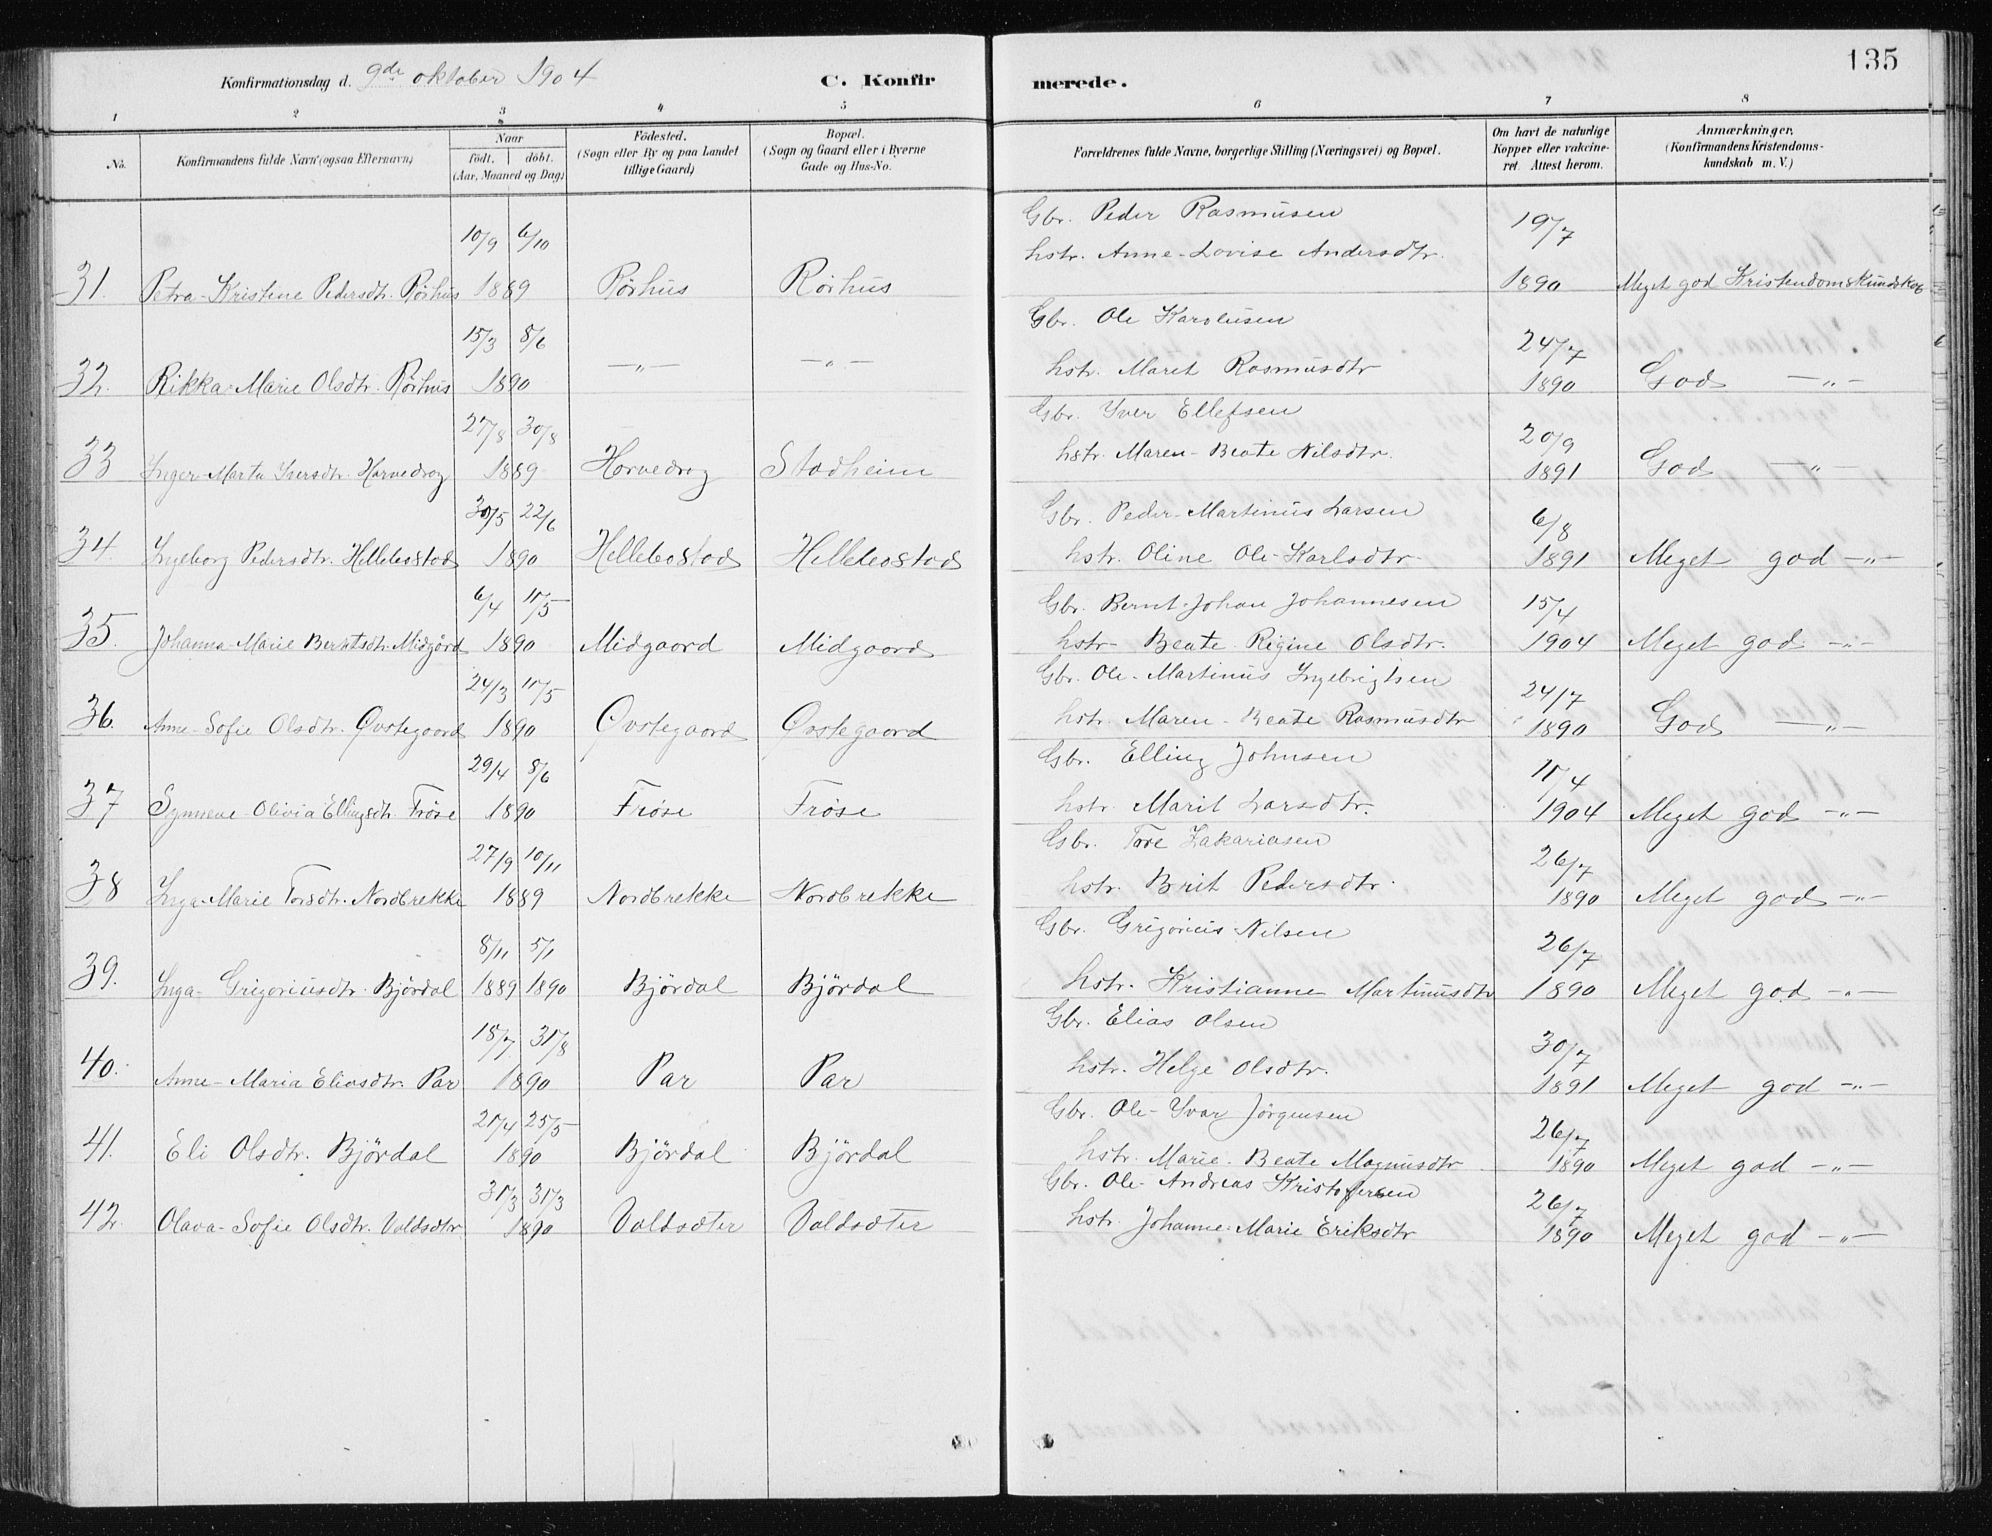 135
Konfirmationsdag d. 9de oktober 1904 C. Konfirmerede.
1 2 3 4 5 6 7 8
No. Konfirmandens fulde Navn (ogsaa Efternavn) Naar födt. döbt. (Aar, Maaned og Dag) Födested. (Sogn eller By og paa Landet tillige Gaard) Bopæl. (Sogn og Gaard eller i Byerne Gade og Hus-No. Forældrenes fulde Navne, borgerlige Stilling (Næringsvei) og Bopæl. Om havt de naturlige Kopper eller vakcineret. Attest herom. Anmærkninger. (Konfirmandens Kristendomskundskab m. V.)
10/9 6/10 Gbr. Peder Rasmusen 19/7
hstr. Anne-Lovise Andersdtr.
31. Petra-Kristine Pedersdtr. Rørhus 1889 Rørhus Rørhus 1890 Meget god Kristendomskundskab
15/3 8/6 Gbr. Ole Karolusen 24/7
32. Rikka-Marie Olsdtr. Rørhus 1890 —"— —"— hstr. Maret Rasmusdtr 1890 God —"—
27/8 30/8 Gbr. Yver Ellefsen 20/9
33 Inger-Marta Iversdtr. Horvedrog 1889 Horvedrog Stadheim hstr. Maren-Beate Nilsdtr. 1891 God —"—
30/5 22/6 Gbr. Peder-Martinus Larsen 6/8
34. Ingeborg Pedersdtr. Hellebostad 1890 Hellebostad Hellebostad hstr. Oline Ole-Karlsdtr. 1891 Meget god —"—
6/4 11/5 Gbr. Bernt-Johan Johannesen 15/4
35. Johanna-Marie Berntsdtr. Midgård 1890 Midgaard Midgaard hstr- Beate Rigine Olsdtr. 1904 Meget god —"—
24/3 11/5 Gbr. Ole-Martinus Ingebrigtsen 24/7
36 Anne-Sofie Olsdtr. Øvstegaard 1890 Øvstegaard Øvstegaard hstr. Maren-Beate Rasmusdtr 1890 God —"—
29/4 8/6 Gbr. Elling Johnsen 11/4
37 Synneve-Olivia Ellingsdtr. Frøse 1890 Frøse Frøse hstr. Marit Larsdtr. 1904 Meget god —"—
27/9 10/11 Gbr. Tore Zakariasen 26/7
38 Inga-Marie Torsdtr. Nordbrekke 1889 Nordbrekke Nordbrekke hstr. Brit Pedersdtr. 1890 Meget god —"—
8/11 5/1 Gbr. Grigorius Nilsen 26/7
39. Inga-Grigoriusdtr. Björdal 1889 1890 Björdal Björdal hstr. Kristianne Martinusdtr 1890 Meget god —"—
18/7 31/8 Gbr. Elias Olsen 30/7
40. Anne-Maria Eliasdtr. Par 1890 Par Par hstr. Helge Olsdtr. 1891 Meget god —"—
21/4 25/5 Gbr. Ole-Yvar Jörgensen 26/7
41. Eli Olsdtr. Björdal 1890 Björdal Björdal hstr. Marie-Beate Magnusdtr 1890 Meget god —"—
31/3 31/3 Gbr. Ole-Andreas Kristofersen 26/7
42. Olava-Sofie Olsdtr. Valdsæter 1890 Valdsæter Valdsæter hstr. Johanne-Marie Eriksdtr 1890 Meget god —"—